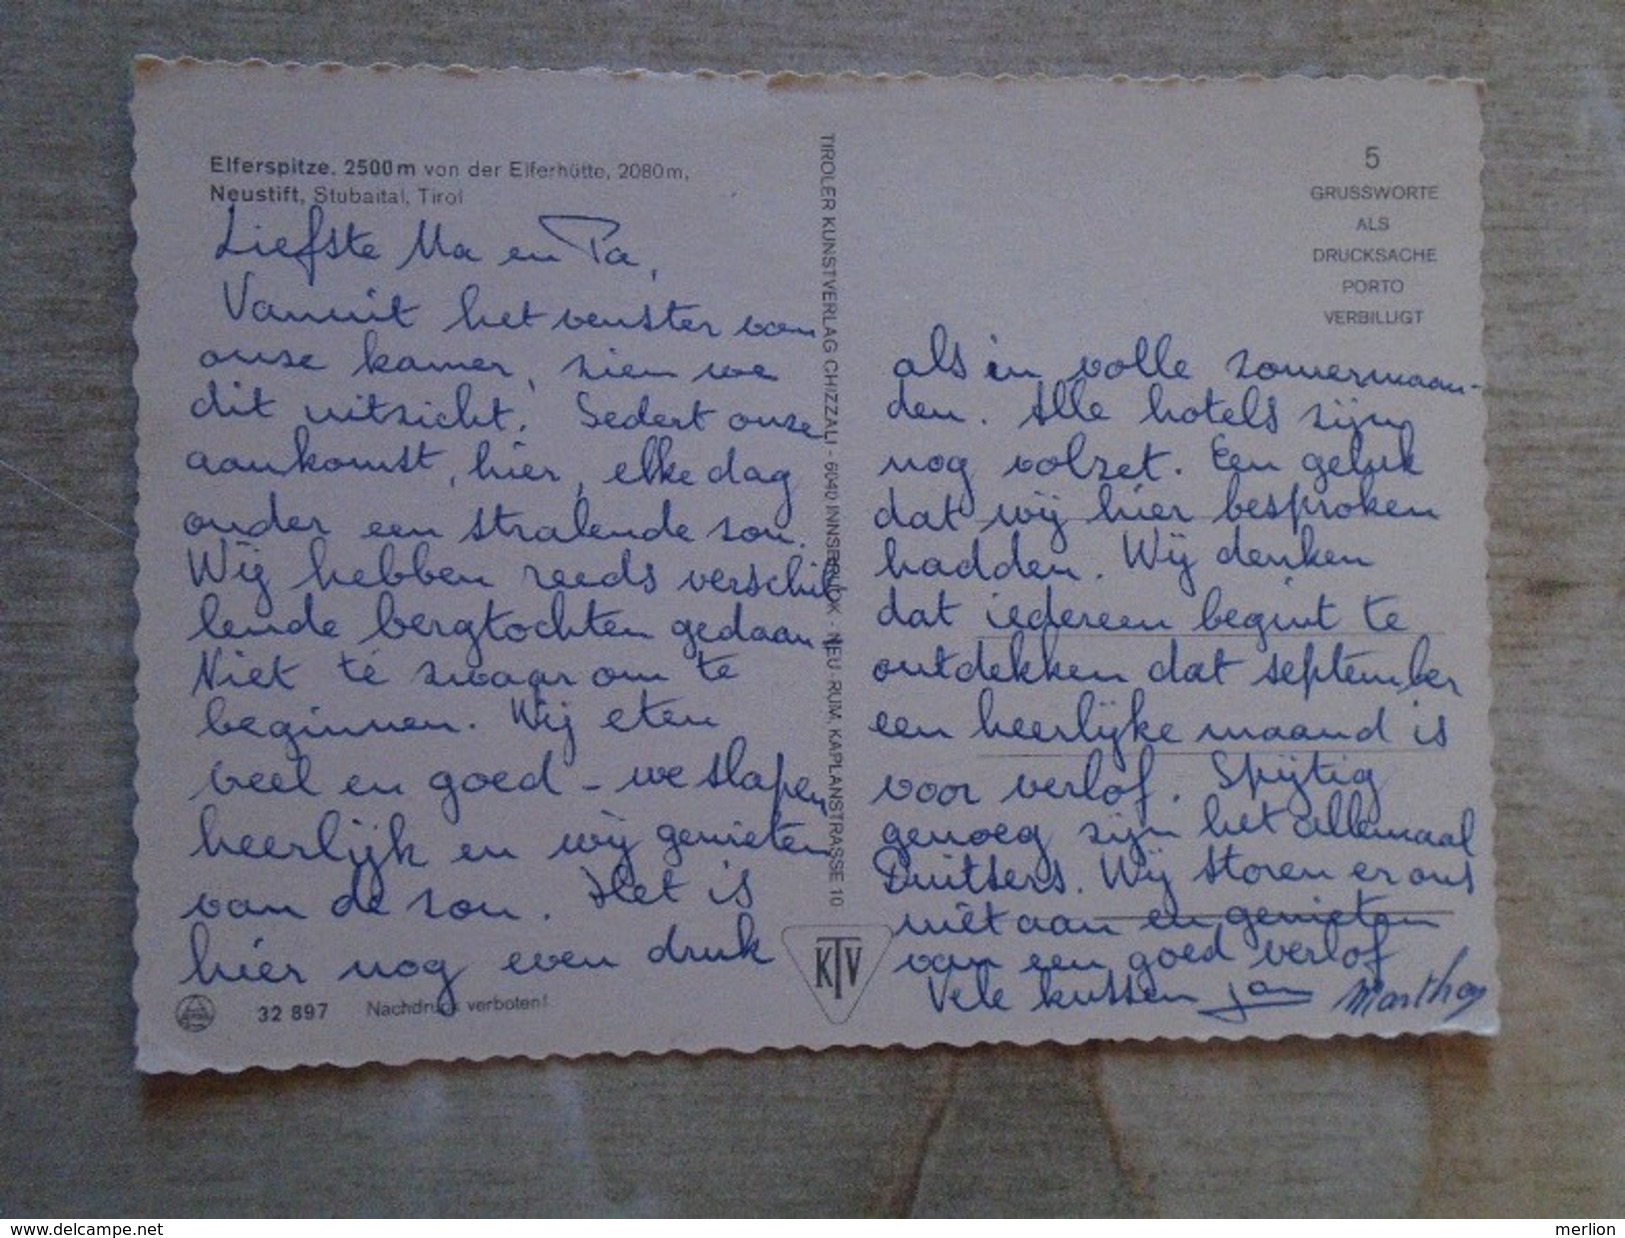 Elferspitze, 2500 m von der Elferhütte, 2080 m,
Neustift, Stubaital, Tirol
Liefste Ma en Pa,
Vanuit het venster van
onze kamer, zien we
dit uitzicht. Sedert onze
aankomst, hier, elke dag
onder een stralende zon.
Wij hebben reeds verschil
lende bergtochten gedaan
Niet té zwaar om te
beginnen. Wij eten
veel en goed – we slapen
heerlijk en wij genieten
van de zon. Het is
hier nog even druk
32 897 Nachdruck verboten!
TIROLER KUNSTVERLAG CHIZZALI - 6040 INNSBRUCK - NEU-RUM, KAPLANSTRASSE 10
KTV
5
GRUSSWORTE
ALS
DRUCKSACHE
PORTO
VERBILLIGT
als in volle zomermaan-
den. Alle hotels zijn
nog volzet. Een geluk
dat wij hier besproken
hadden. Wij denken
dat iedereen begint te
ontdekken dat september
een heerlijke maand is
voor verlof. Spijtig
genoeg zijn het allemaal
Duitsers. Wij storen er ons
niet aan en genieten
van een goed verlof
Vele kussen Jan Martha
delcampe.net
merlion